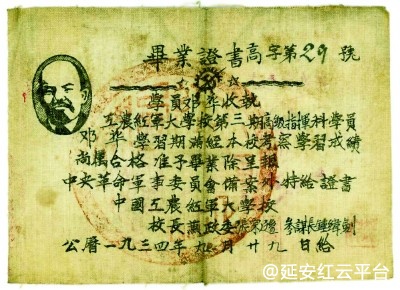 畢業證書高字第29號
學員鄧華收執
工農紅軍大學校第三期高級指揮科學員
鄧華學習期滿業經本校考察學習成績
尚屬合格准予畢業除呈報
中央革命軍事委員會備案外特給證書
中國工農紅軍大學校
校長兼政委 參謀長鍾緯劍
公曆一九三四年九月廿九日給
@延安红云平台